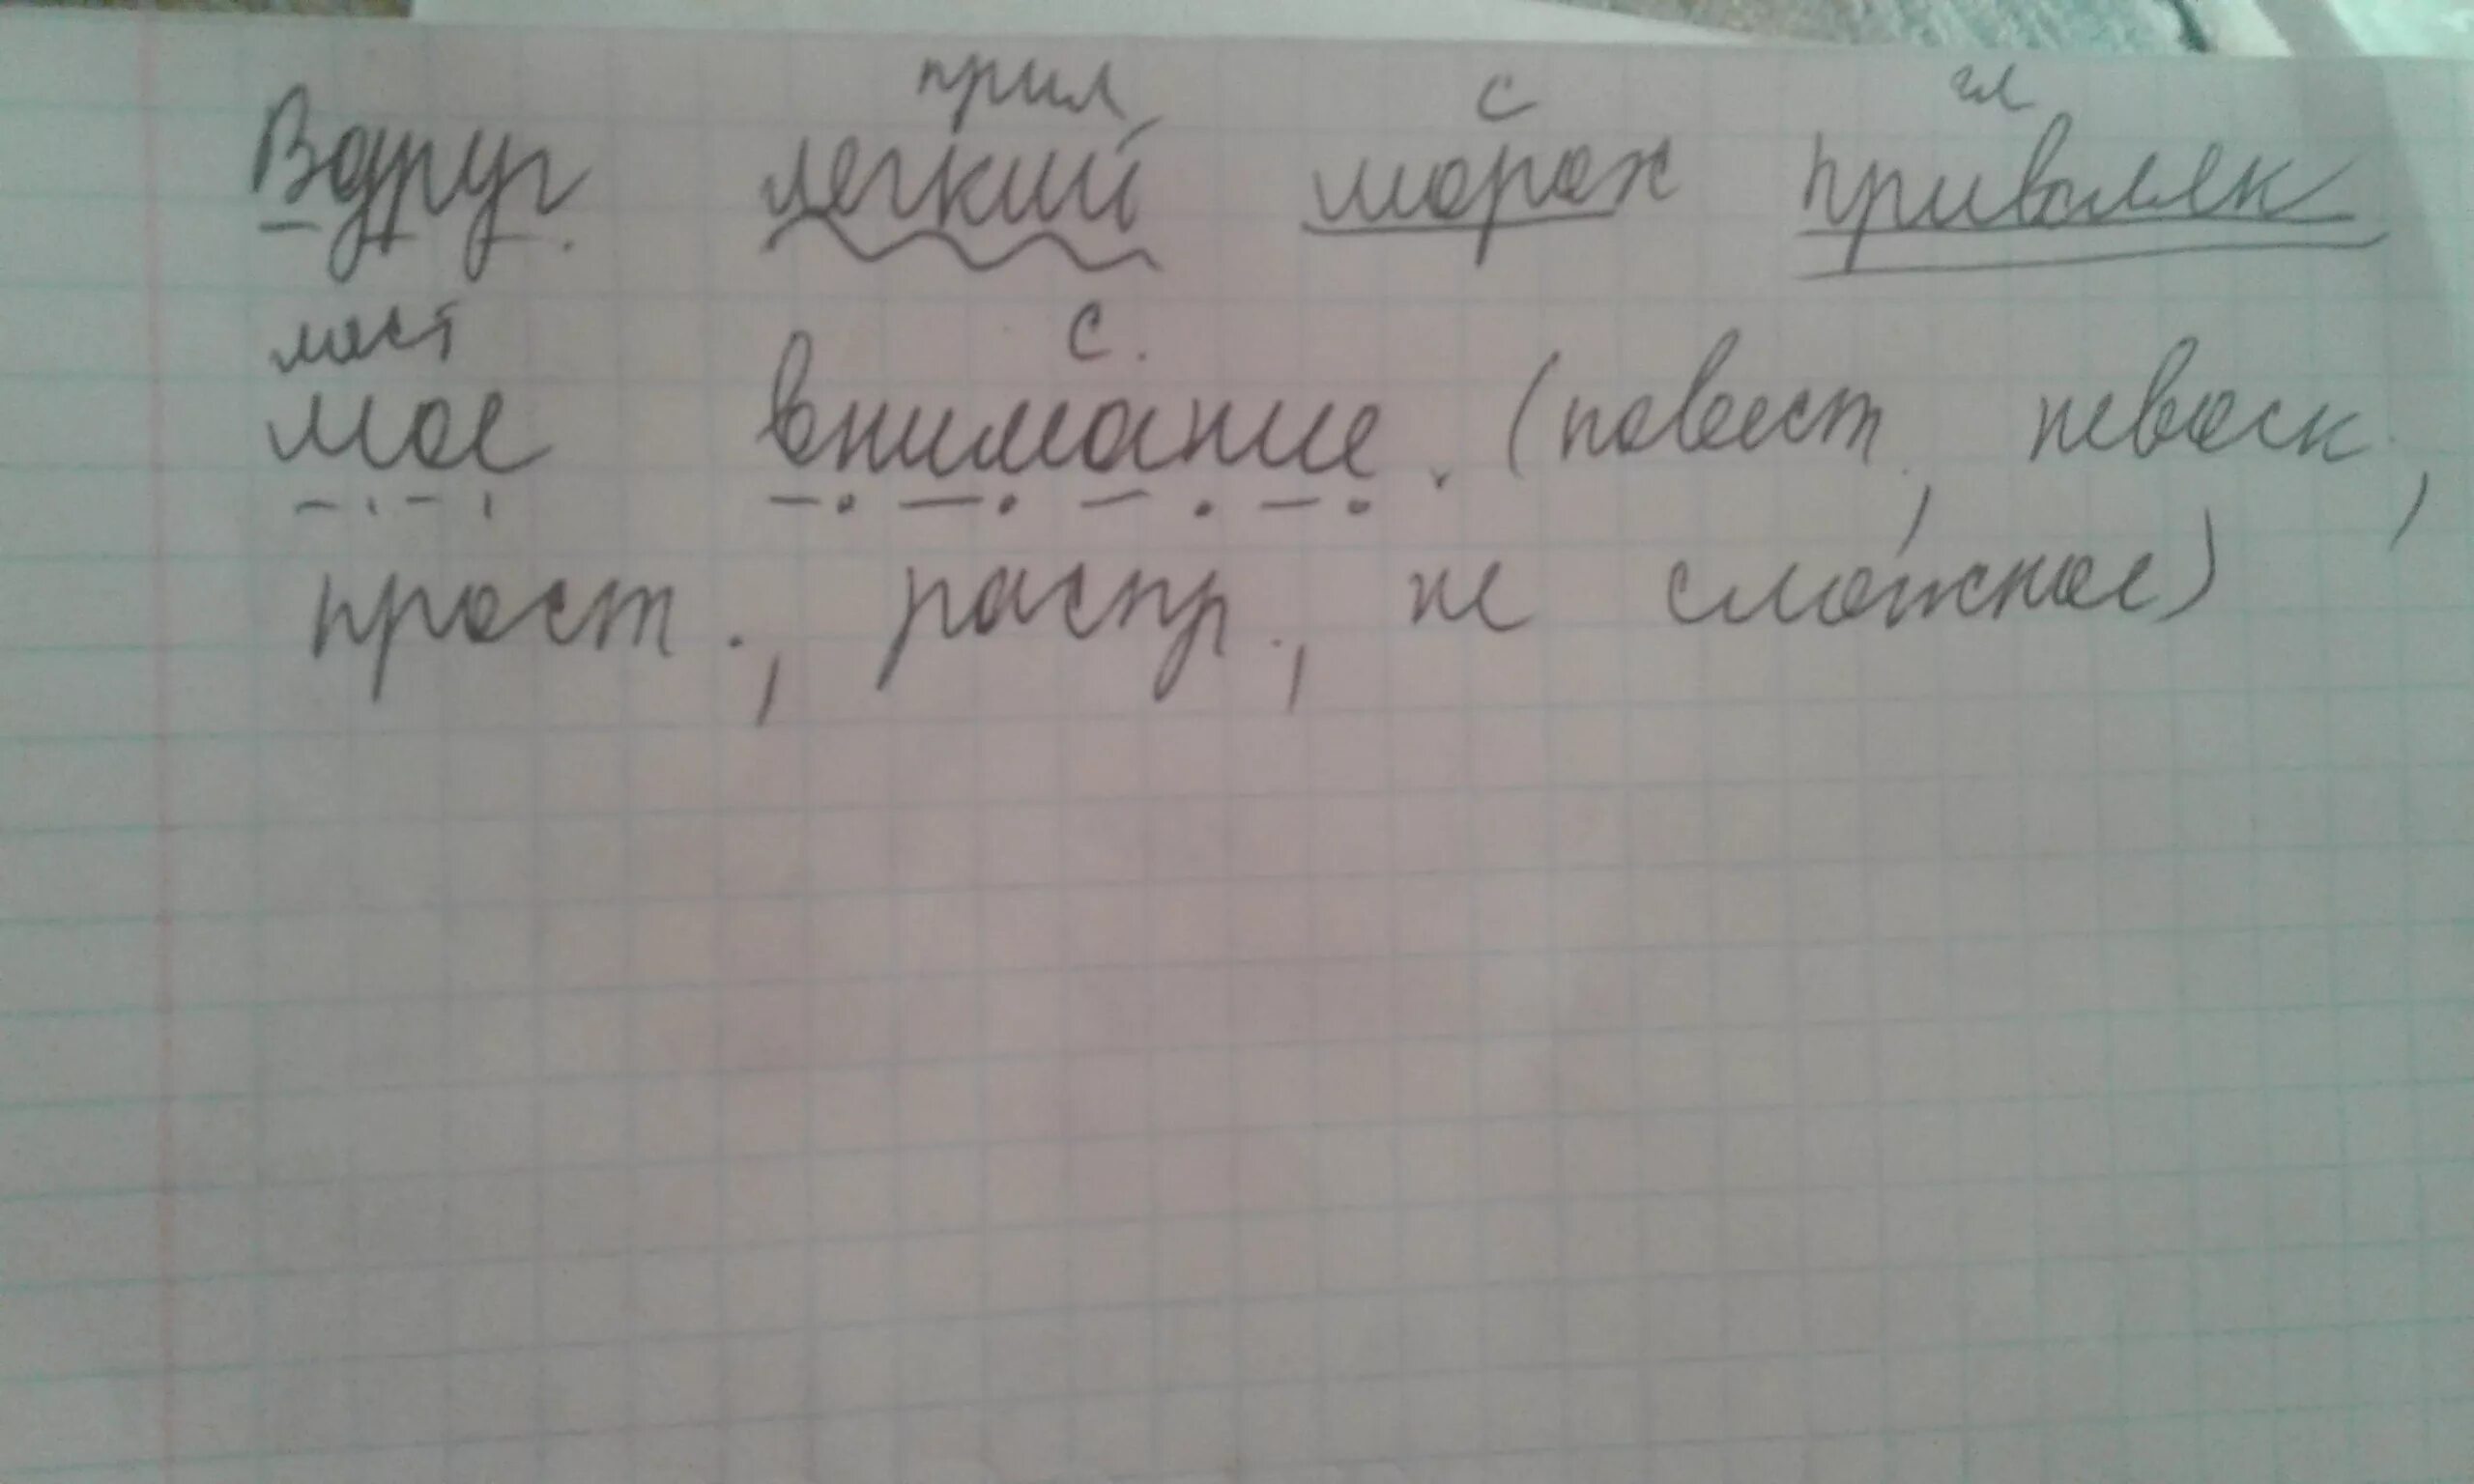 прил с гл
Вдруг легкий шорох привлек
мест с.
мое внимание. (повест, невоск,
прост., распр., не сложное)